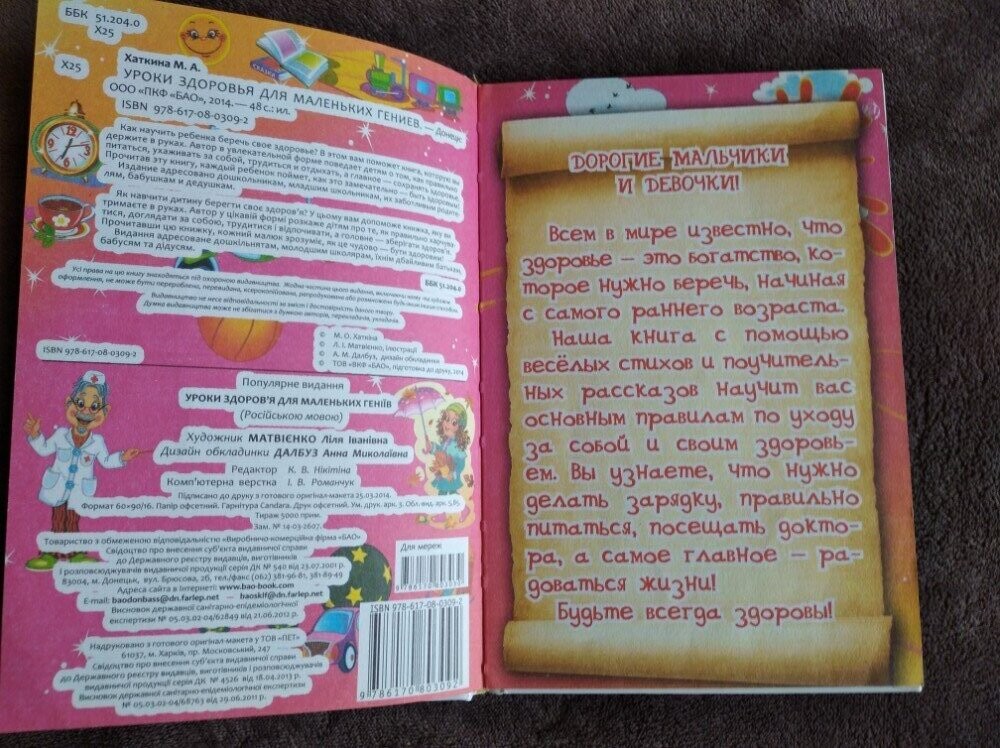 ББК 51.204.0
Х25
Х25
Хаткина М. А.
УРОКИ ЗДОРОВЬЯ ДЛЯ МАЛЕНЬКИХ ГЕНИЕВ. — Донецк:
ООО «ПКФ «БАО», 2014. — 48 с.: ил.
ISBN 978-617-08-0309-2
Как научить ребенка беречь свое здоровье? В этом вам поможет книга, которую вы
держите в руках. Автор в увлекательной форме поведает детям о том, как правильно
питаться, ухаживать за собой, трудиться и отдыхать, а главное — сохранять здоровье.
Прочитав эту книгу, каждый ребенок поймет, как это замечательно — быть здоровым!
Издание адресовано дошкольникам, младшим школьникам, их заботливым родите-
лям, бабушкам и дедушкам.
Як навчити дитину берегти своє здоров'я? У цьому вам допоможе книжка, яку ви
тримаєте в руках. Автор у цікавій формі розкаже дітям про те, як правильно харчува-
тися, доглядати за собою, трудитися і відпочивати, а головне — зберігати здоров'я.
Прочитавши цю книжку, кожний малюк зрозуміє, як це чудово — бути здоровим!
Видання адресоване дошкільнятам, молодшим школярам, їхнім дбайливим батькам,
бабусям та дідусям.
ББК 51.204.0
Усі права на цю книгу знаходяться під охороною видавництва. Жодна частина цього видання, включаючи назву та художнє
оформлення, не може бути перероблена, перевидана, ксерокопійована, репродукована або розмножена будь-яким іншим способом.
Видавництво не несе відповідальності за зміст і достовірність даного твору.
Думка видавництва може не збігатися з думкою авторів, перекладачів, укладачів.
© М. О. Хаткіна
© Л. І. Матвієнко, ілюстрації
© А. М. Далбуз, дизайн обкладинки
© ТОВ «ВКФ «БАО», підготовка до друку, 2014
ISBN 978-617-08-0309-2
Популярне видання
УРОКИ ЗДОРОВ'Я ДЛЯ МАЛЕНЬКИХ ГЕНІЇВ
(Російською мовою)
Художник МАТВІЄНКО Ліля Іванівна
Дизайн обкладинки ДАЛБУЗ Анна Миколаївна
Редактор К. В. Нікітіна
Комп'ютерна верстка І. В. Романчук
Підписано до друку з готового оригінал-макета 25.03.2014.
Формат 60×90/16. Папір офсетний. Гарнітура Candara. Друк офсетний. Ум. друк. арк. 3. Обл.-вид. арк. 5,85
Тираж 5000 прим.
Зам. № 14-03-2607.
Товариство з обмеженою відповідальністю «Виробничо-комерційна фірма «БАО»
Свідоцтво про внесення суб'єкта видавничої справи
до Державного реєстру видавців, виготівників
і розповсюджувачів видавничої продукції серія ДК № 540 від 23.07.2001 р.
83004, м. Донецьк, вул. Брюсова, 26, тел./факс (062) 381-96-81, 381-89-49
Адреса сайта в Інтернеті: www.bao-book.com
E-mail: baodonbass@dn.farlep.net — baoskif@dn.farlep.net
Висновок державної санітарно-епідеміологічної
експертизи № 05.03.02-04/62849 від 21.06.2012 р.
Надруковано з готового оригінал-макета у ТОВ «ПЕТ»
61037, м. Харків, пр. Московський, 247
Свідоцтво про внесення суб'єкта видавничої справи
до Державного реєстру видавців, виготівників і розповсюджувачів
видавничої продукції серія ДК № 4526 від 18.04.2013 р.
Висновок державної санітарно-епідеміологічної експертизи
№ 05.03.02-04/68763 від 29.06.2011 р.
Для мереж
ISBN 978-617-08-0309-2
9 786170 803092
ДОРОГИЕ МАЛЬЧИКИ
И ДЕВОЧКИ!
Всем в мире известно, что
здоровье — это богатство, ко-
торое нужно беречь, начиная
с самого раннего возраста.
Наша книга с помощью
весёлых стихов и поучитель-
ных рассказов научит вас
основным правилам по уходу
за собой и своим здоровь-
ем. Вы узнаете, что нужно
делать зарядку, правильно
питаться, посещать докто-
ра, а самое главное — ра-
доваться жизни!
Будьте всегда здоровы!